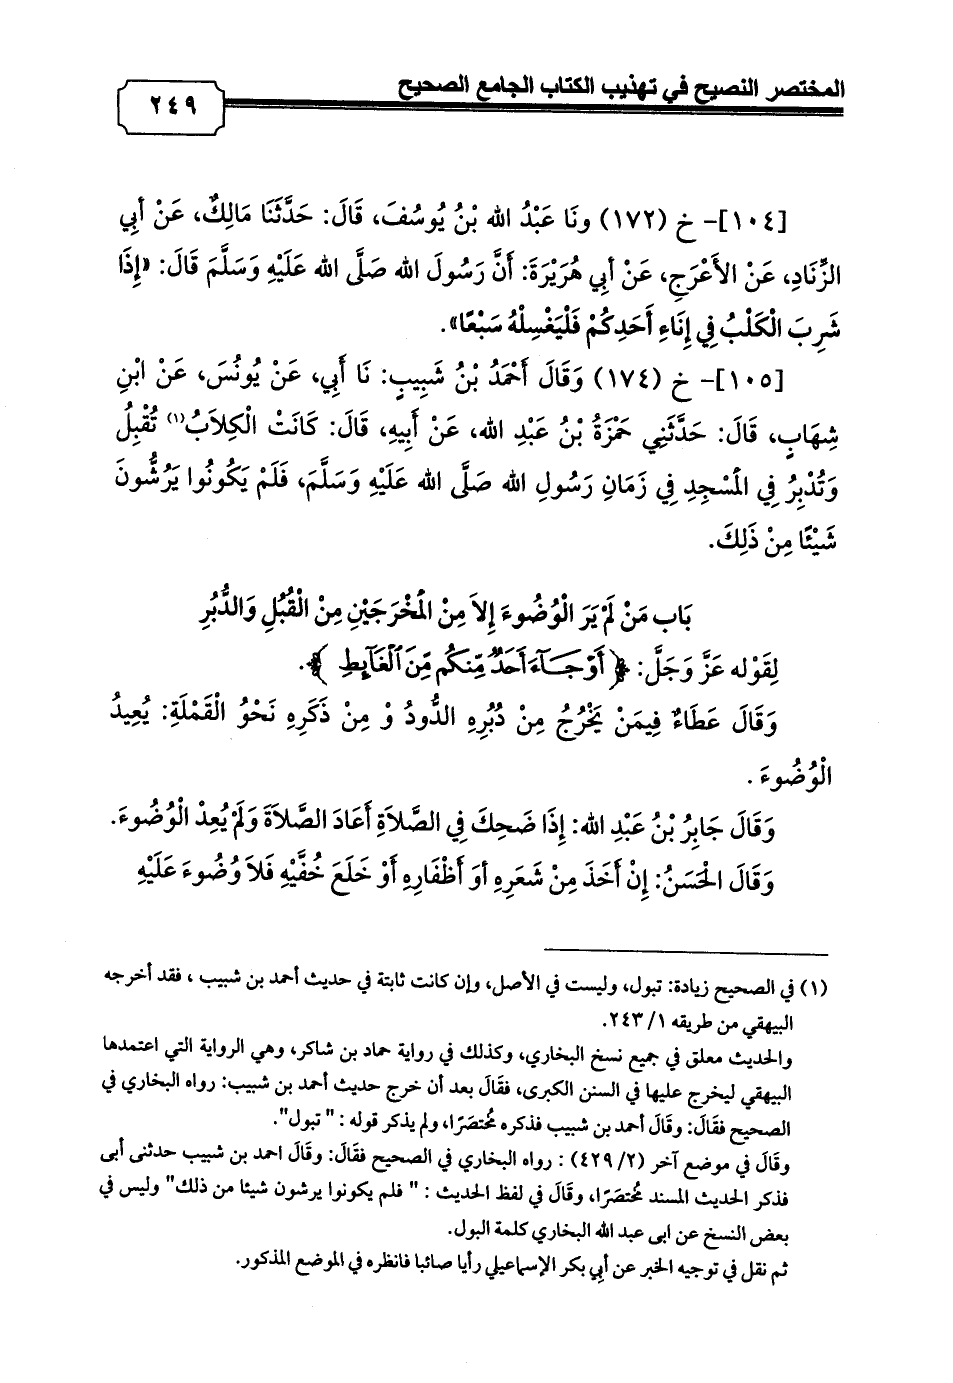 المختصر النصيح في تهذيب الكتاب الجامع الصحيح
٢٤٩
[١٠٤]- خ (١٧٢) ونَا عَبْدُ الله بْنُ يُوسُفَ، قَالَ: حَدَّثَنَا مَالِكٌ، عَنْ أبِي
الزِّنَادِ، عَنْ الأَعْرَجِ، عَنْ أبِي هُرَيْرَةَ: أنَّ رَسُولَ الله صَلَّى الله عَلَيْهِ وَسَلَّمَ قَالَ: «إِذَا
شَرِبَ الْكَلْبُ فِي إِنَاءِ أَحَدِكُمْ فَلْيَغْسِلْهُ سَبْعًا».
[١٠٥]- خ (١٧٤) وَقَالَ أَحْمَدُ بْنُ شَبِيبٍ: نَا أَبِي، عَنْ يُونُسَ، عَنْ ابْنِ
شِهَابٍ، قَالَ: حَدَّثَنِي حَمْزَةُ بْنُ عَبْدِ الله، عَنْ أَبِيهِ، قَالَ: كَانَتْ الْكِلاَبُ(١) تُقْبِلُ
وَتُدْبِرُ فِي الْمَسْجِدِ فِي زَمَانِ رَسُولِ الله صَلَّى الله عَلَيْهِ وَسَلَّمَ، فَلَمْ يَكُونُوا يَرُشُّونَ
شَيْئًا مِنْ ذَلِكَ.
بَاب مَنْ لَمْ يَرَ الْوُضُوءَ إِلاَ مِنْ الْمَخْرَجَيْنِ مِنْ الْقُبُلِ وَالدُّبُرِ
لِقَوْلِه عَزَّ وَجَلَّ: ﴿أَوْ جَآءَ أَحَدٌ مِّنكُم مِّنَ ٱلْغَآئِطِ﴾.
وَقَالَ عَطَاءٌ فِيمَنْ يَخْرُجُ مِنْ دُبُرِهِ الدُّودُ وْ مِنْ ذَكَرِهِ نَحْوُ الْقَمْلَةِ: يُعِيدُ
الْوُضُوءَ .
وَقَالَ جَابِرُ بْنُ عَبْدِ الله: إِذَا ضَحِكَ فِي الصَّلاَةِ أَعَادَ الصَّلاَةَ وَلَمْ يُعِدْ الْوُضُوءَ.
وَقَالَ الْحَسَنُ: إِنْ أَخَذَ مِنْ شَعَرِهِ أوَ أَظْفَارِهِ أَوْ خَلَعَ خُفَّيْهِ فَلاَ وُضُوءَ عَلَيْهِ
(١) في الصحيح زيادة: تبول، وليست في الأصل، وإن كانت ثابتة في حديث أحمد بن شبيب ، فقد أخرجه
البيهقي من طريقه ١/ ٢٤٣.
والحديث معلق في جميع نسخ البخاري، وكذلك في رواية حماد بن شاكر، وهي الرواية التي اعتمدها
البيهقي ليخرج عليها في السنن الكبرى، فقَالَ بعد أن خرج حديث أحمد بن شبيب: رواه البخاري في
الصحيح فقَالَ: وقَالَ أحمد بن شبيب فذكره مُختصَرًا، ولم يذكر قوله : " تبول".
وقَالَ في موضع آخر (٢/ ٤٢٩) : رواه البخاري في الصحيح فقَالَ: وقَالَ احمد بن شبيب حدثنى أبى
فذكر الحديث المسند مُختصَرًا، وقَالَ في لفظ الحديث : " فلم يكونوا يرشون شيئا من ذلك" وليس في
بعض النسخ عن ابى عبد الله البخاري كلمة البول.
ثم نقل في توجيه الخبر عن أبي بكر الإسماعيلي رأيا صائبا فانظره في الموضع المذكور.